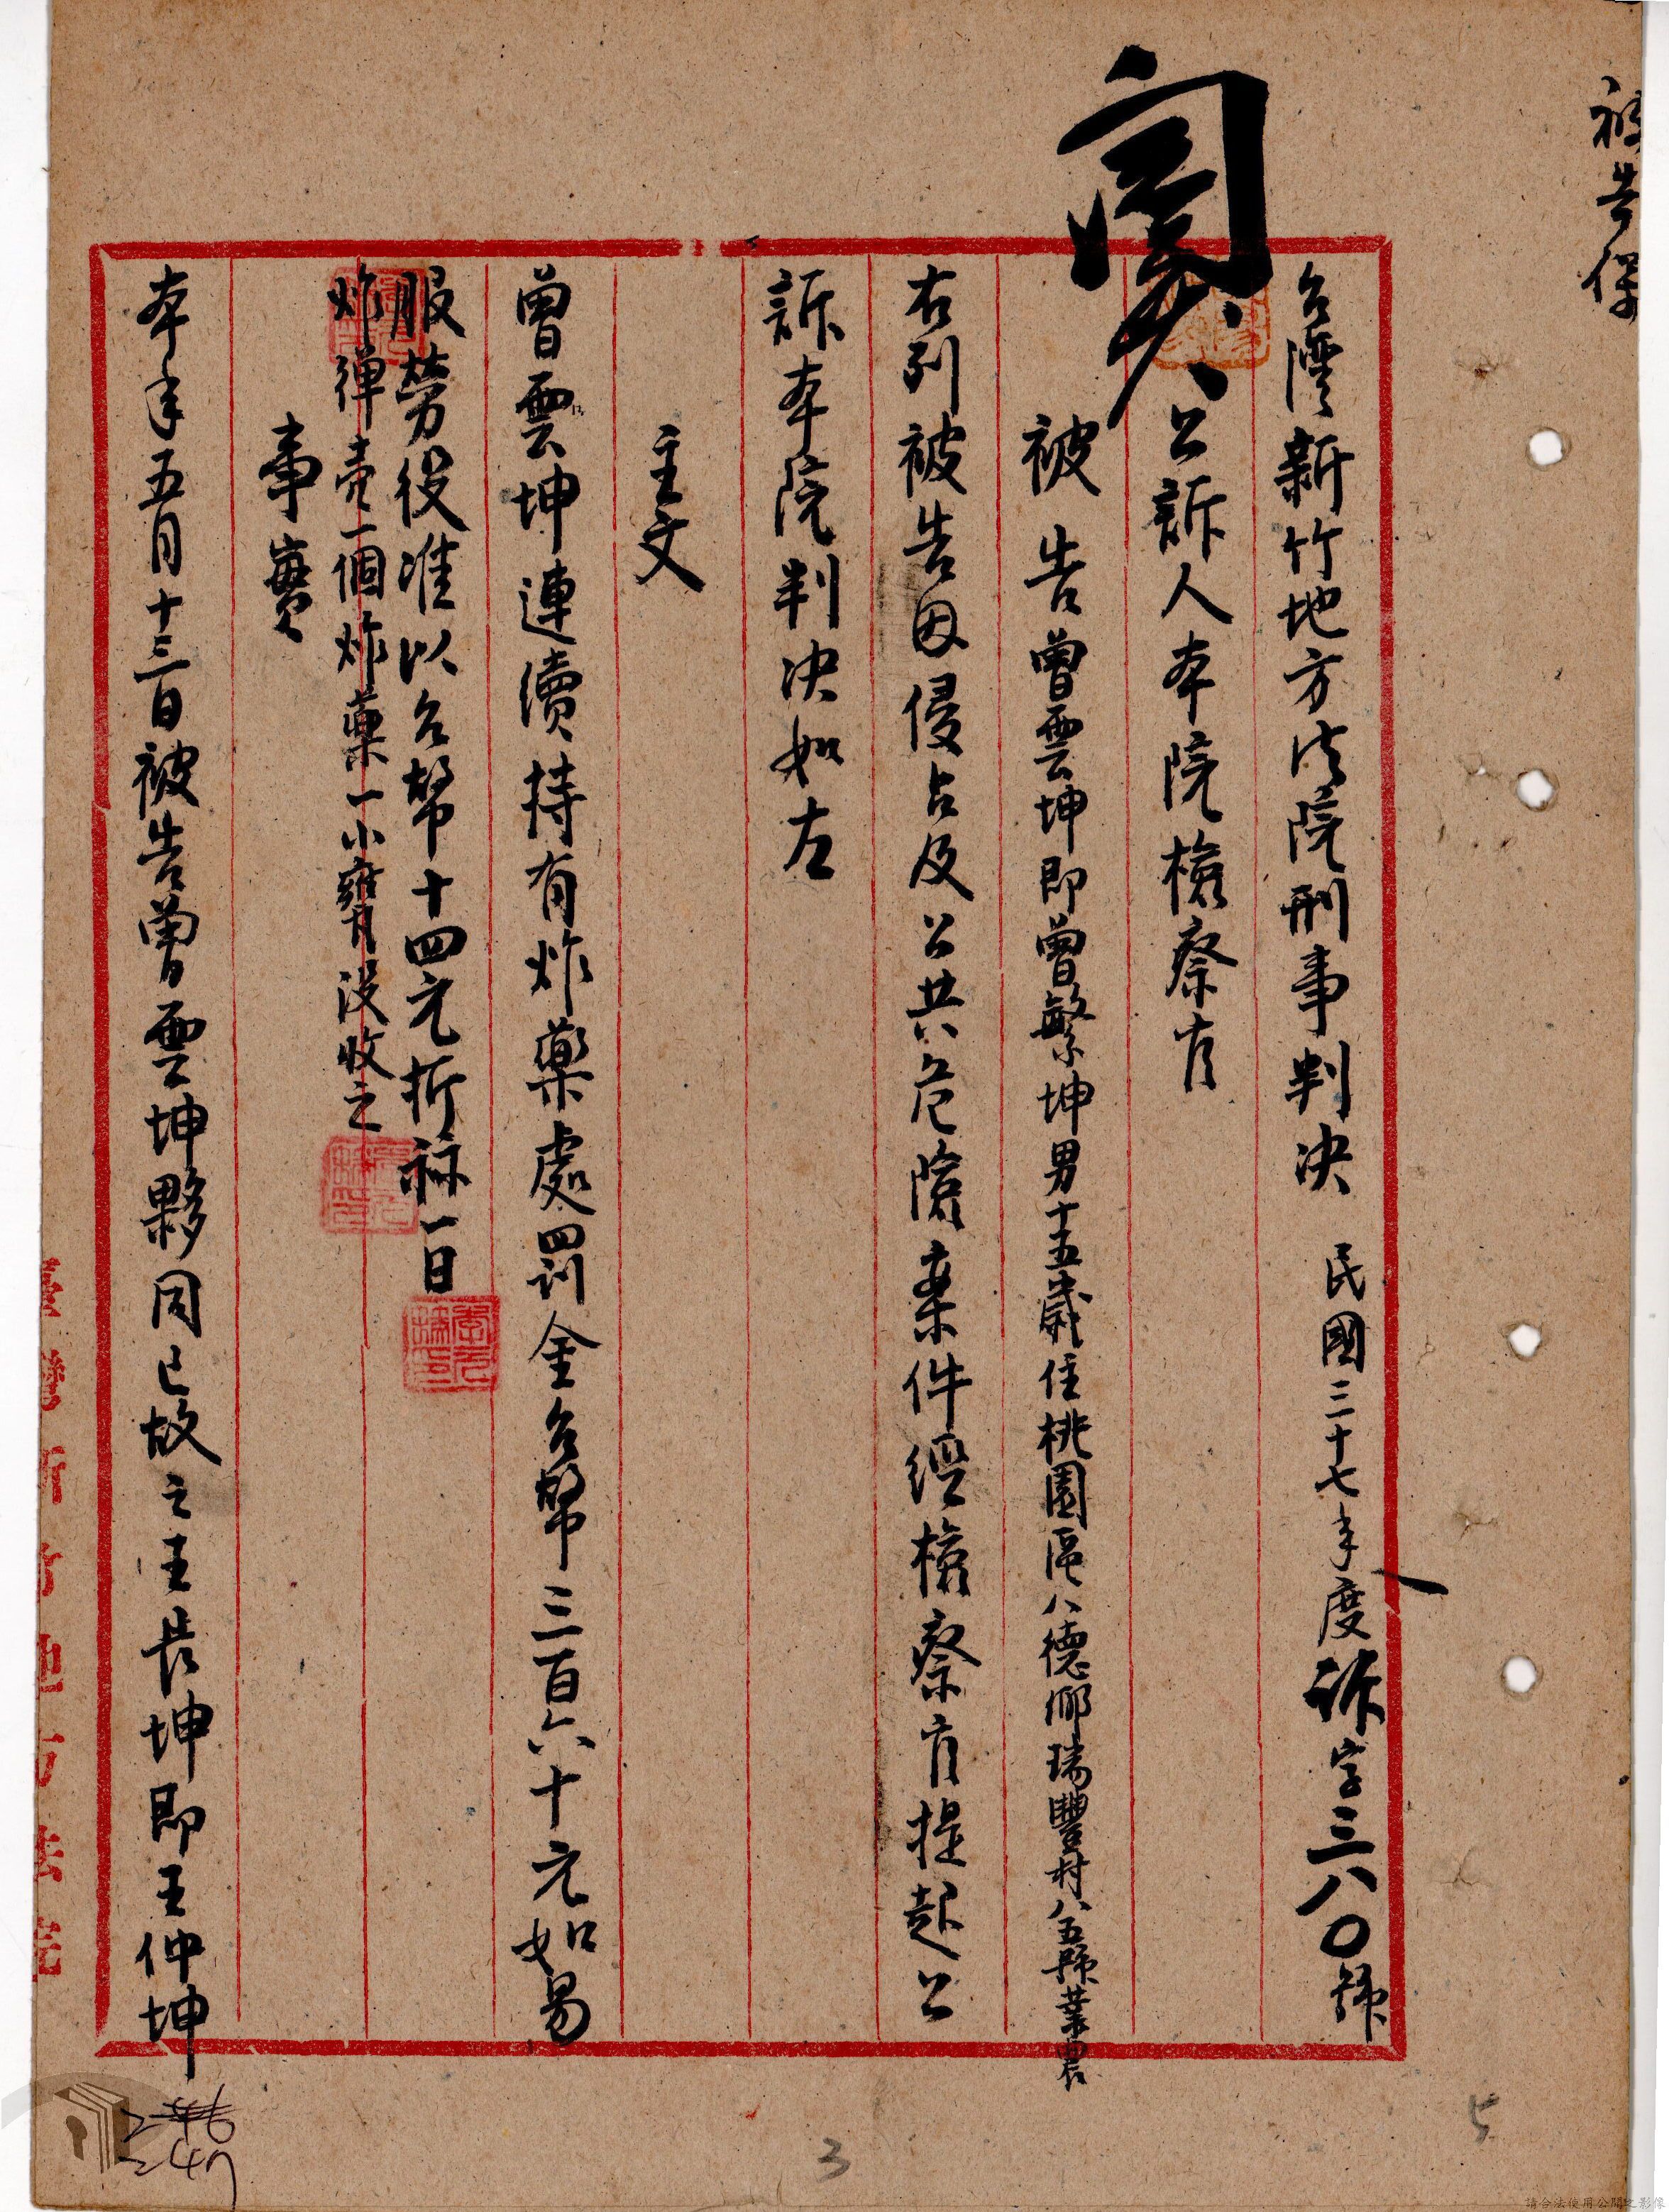 被告保
閱
台灣新竹地方法院刑事判決 民國三十七年度訴字三八〇號
公訴人本院檢察官
被告曾雲坤即曾繁坤男十五歲住桃園區八德鄉瑞豐村八五號業農
右列被告因侵占及公共危險案件經檢察官提起公
訴本院判決如左
主文
曾雲坤連續持有炸藥處罰金台幣三百六十元如易
服勞役准以台幣十四元折祘一日
炸彈壳一個炸藥一小甕沒收之
事實
本年五月十三日被告曾雲坤夥同已故之王長坤即王仲坤
臺灣新竹地方法院
247
3
5
請合法使用公開之影像